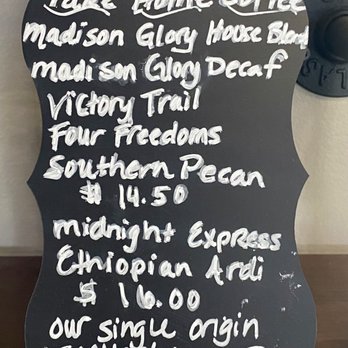 Take Home Coffee
Madison Glory House Blend
Madison Glory Decaf
Victory Trail
Four Freedoms
Southern Pecan
$ 14.50
midnight Express
Ethiopian Ardi
$ 16.00
our single origin